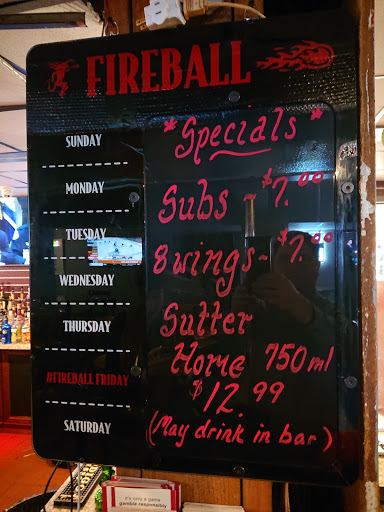 FIREBALL
SUNDAY
MONDAY
TUESDAY
WEDNESDAY
THURSDAY
#FIREBALL FRIDAY
SATURDAY
* Specials *
Subs - $7.00
8 wings - $7.00
Sutter
Home 750ml
$12.99
(May drink in bar)
it's only a game
gamble responsibly